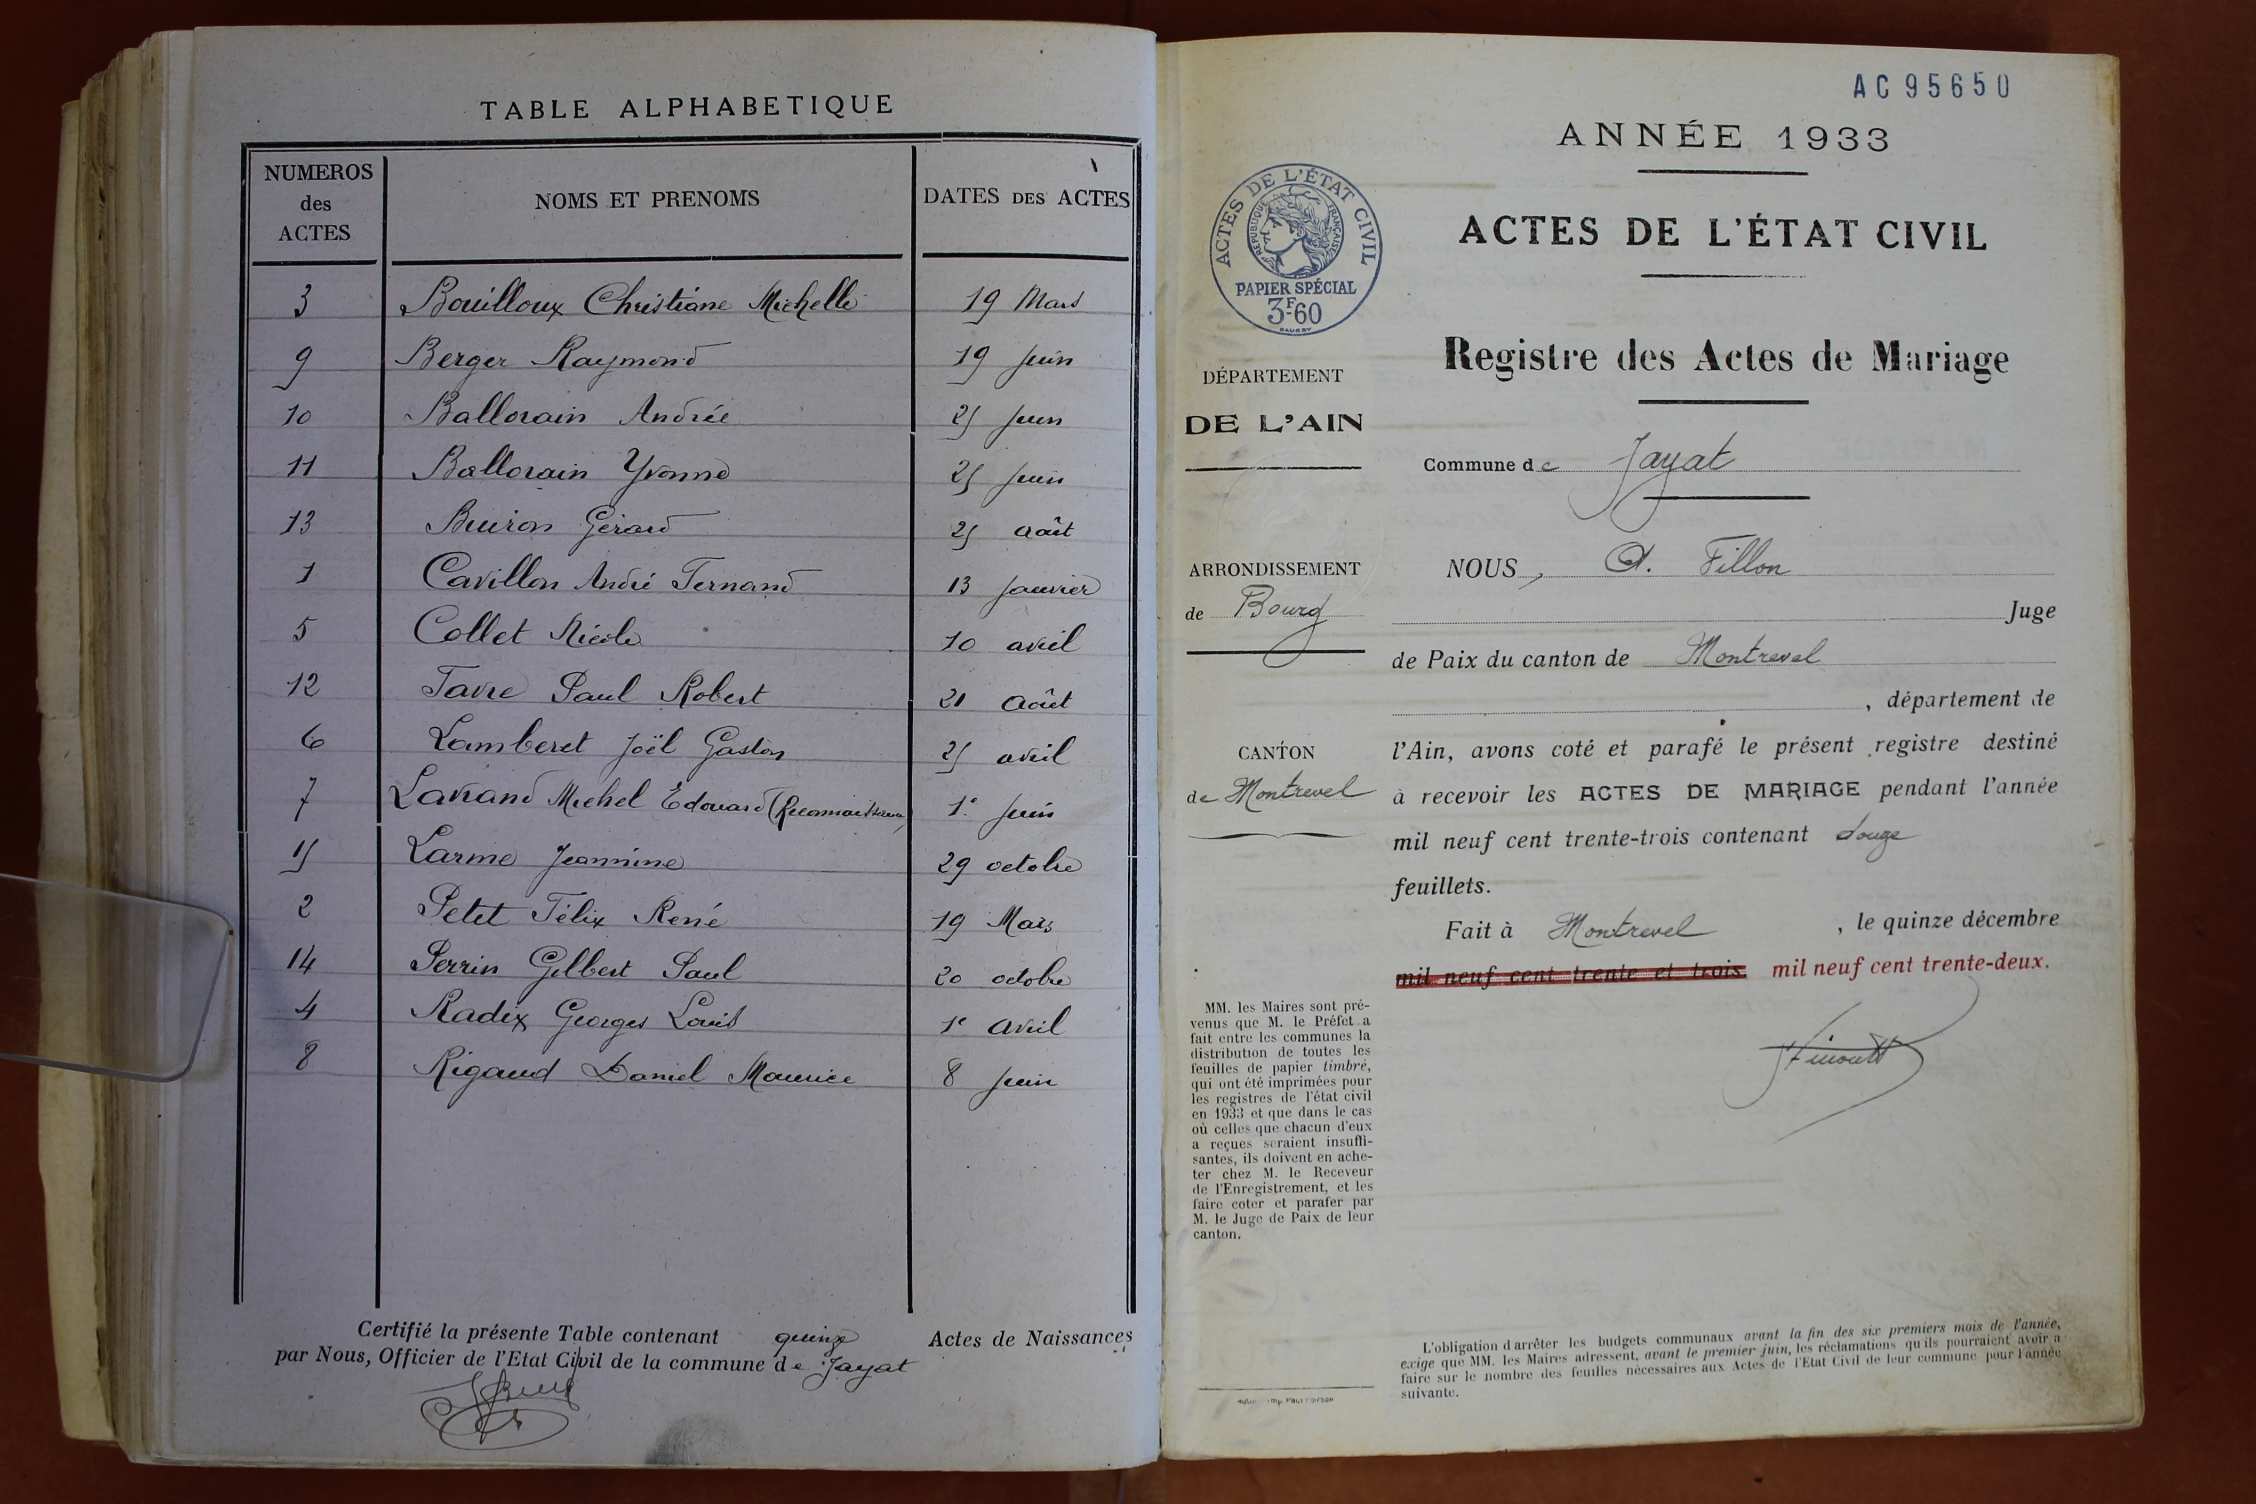 TABLE ALPHABETIQUE
NUMEROS des ACTES
NOMS ET PRENOMS
DATES DES ACTES
3 Bouilloux Christiane Michelle 19 Mars
9 Berger Raymond 19 juin
10 Ballorain Andrée 25 juin
11 Ballorain Yvonne 25 juin
13 Buiron Gérard 25 août
1 Cavillon André Fernand 13 janvier
5 Collet Nicole 10 avril
12 Favre Paul Robert 21 août
6 Lamberet Joël Gaston 25 avril
7 Lavrand Michel Edouard (Reconnaissance) 1e juin
15 Larme Jeannine 29 octobre
2 Petit Félix René 19 Mars
14 Perrin Gilbert Paul 20 octobre
4 Radix Georges Louis 1e avril
8 Rigaud Daniel Maurice 8 juin
Certifié la présente Table contenant quinze Actes de Naissances
par Nous, Officier de l'Etat Civil de la commune de Jayat
AC 95650
ANNÉE 1933
ACTES DE L'ÉTAT CIVIL
RÉPUBLIQUE FRANÇAISE
PAPIER SPÉCIAL
3F60
ACTES DE L'ÉTAT CIVIL
Registre des Actes de Mariage
DÉPARTEMENT
DE L'AIN
Commune de Jayat
ARRONDISSEMENT
de Bourg
CANTON
de Montrevel
NOUS, A. Fillon
Juge
de Paix du canton de Montrevel
, département de
l'Ain, avons coté et parafé le présent registre destiné
à recevoir les ACTES DE MARIAGE pendant l'année
mil neuf cent trente-trois contenant douze
feuillets.
Fait à Montrevel , le quinze décembre
mil neuf cent trente et trois. mil neuf cent trente-deux.
MM. les Maires sont pré-
venus que M. le Préfet a
fait entre les communes la
distribution de toutes les
feuilles de papier timbré,
qui ont été imprimées pour
les registres de l'état civil
en 1933 et que dans le cas
où celles que chacun d'eux
a reçues seraient insuffi-
santes, ils doivent en ache-
ter chez M. le Receveur
de l'Enregistrement, et les
faire coter et parafer par
M. le Juge de Paix de leur
canton.
L'obligation d'arrêter les budgets communaux avant la fin des six premiers mois de l'année,
exige que MM. les Maires adressent, avant le premier juin, les réclamations qu'ils pourraient avoir à
faire sur le nombre des feuilles nécessaires aux Actes de l'Etat Civil de leur commune pour l'année
suivante.